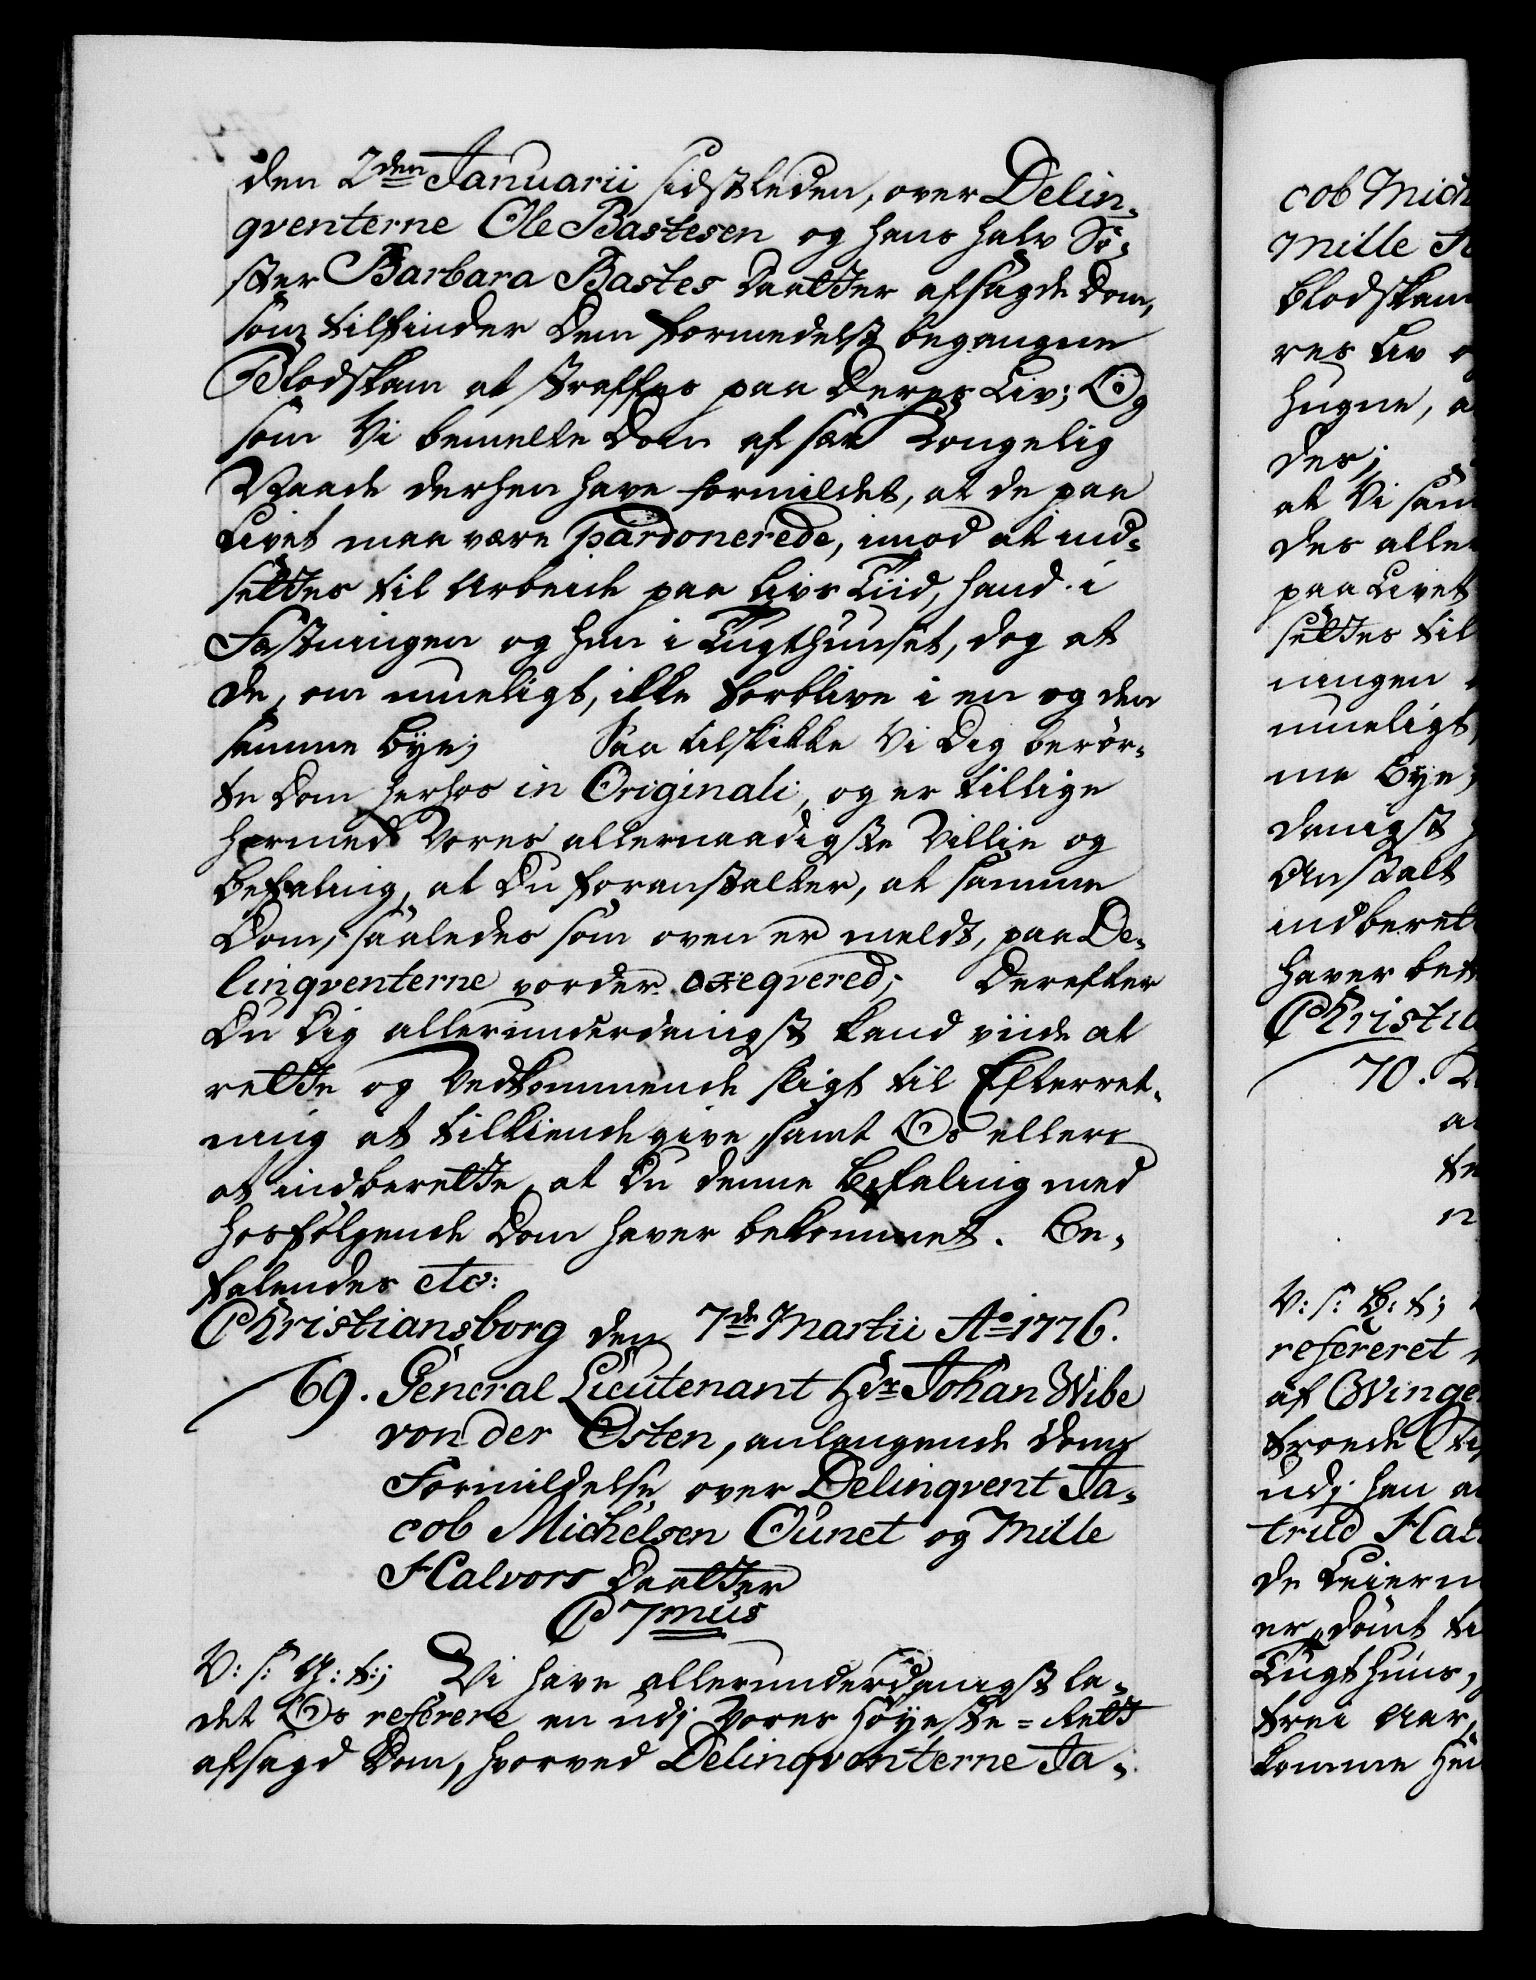 den 2den Januarii sidstleden, over Delin-
qventerne Ole Bastesen og hans halv Sö-
ster Barbara Bastes Daatter afsagde Dom,
som tilfinder Dem formedelst begangne
Blodskam at straffes paa Deres Liv; Og
som Vi bemelte Dom af sær Kongelig
Naade derhen have formildet, at de paa
Livet maa være pardonerede, imod at ind-
settes til Arbeide paa Livs Tiid, hand i
Fæstningen og hun i Tugthuuset, dog at
de, om mueligt, ikke forblive i en og den
samme Bye; Saa tilskikke Vi Dig berör-
te Dom herhos in Originali, og er tillige
hermed Vores allernaadigste Villie og
Befaling, at Du foranstalter, at samme
Dom, saaledes som oven er meldt, paa De-
linqventerne vorder exeqvered; Derefter
Du Dig allerunderdanigst kand viide at
rette og Vedkommende sligt til Efterret-
ning at tilkiende give samt Os ellers
at indberette, at Du denne Befaling med
hosfölgende Dom haver bekommet. Be-
falendes etc:
Christiansborg den 7de Martii Ao 1776.
69. General Lieutenant Hr Johan Wibe
von der Osten, anlangende Doms
Formildelse over Delinqvent Ja-
cob Michelsen Ounet og Mille
Halvors Daatter
C 7mus
V: s: G: t:; Vi have allerunderdanigst la-
det Os referere en udj Vores Höyeste-Rett
afsagd Dom, hvorved Delinqventerne Ja-
cob Mich
Mille H
Blodskam
res Liv o
hugne, a
des;
at Vi sam
des aller
paa Livet
settes til
ningen
mueligt,
me Bye;
danigst h
Anstalt
indberet
haver bek
Christia
70.
a
te
n
V: s: G: t;
refereret
af Winge
troede
udj han a
trud Hal
de Leierm
er dömt ti
Tugthuus,
trei Aar,
komme hen